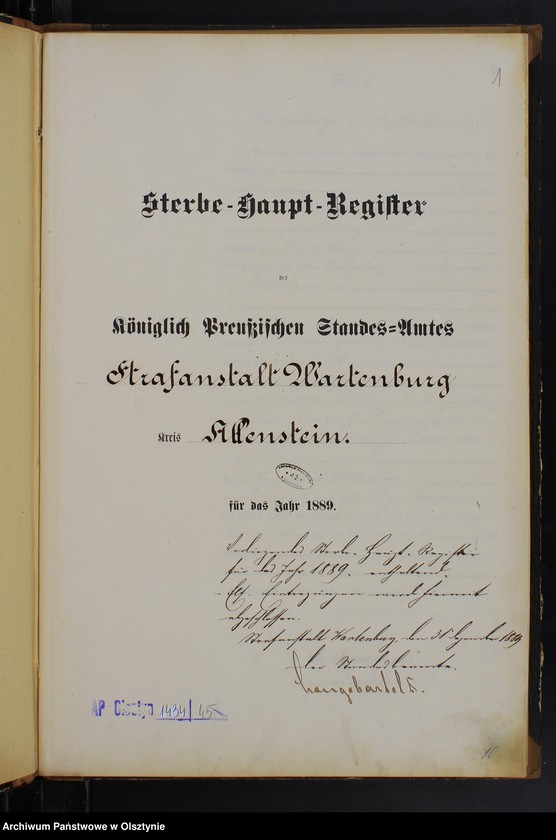 1
Sterbe-Haupt-Register
des
Königlich Preußischen Standes-Amtes
Strafanstalt Wartenburg
Kreis Allenstein.
für das Jahr 1889.
Vorliegendes Sterbe-Haupt-Register
für das Jahr 1889. enthaltend
Eintragungen wird hiermit
abgeschlossen.
Strafanstalt Wartenburg, den 31 Dezember 1889
Der Standesbeamte.
AP Olsztyn 1434/45
Archiwum Państwowe w Olsztynie